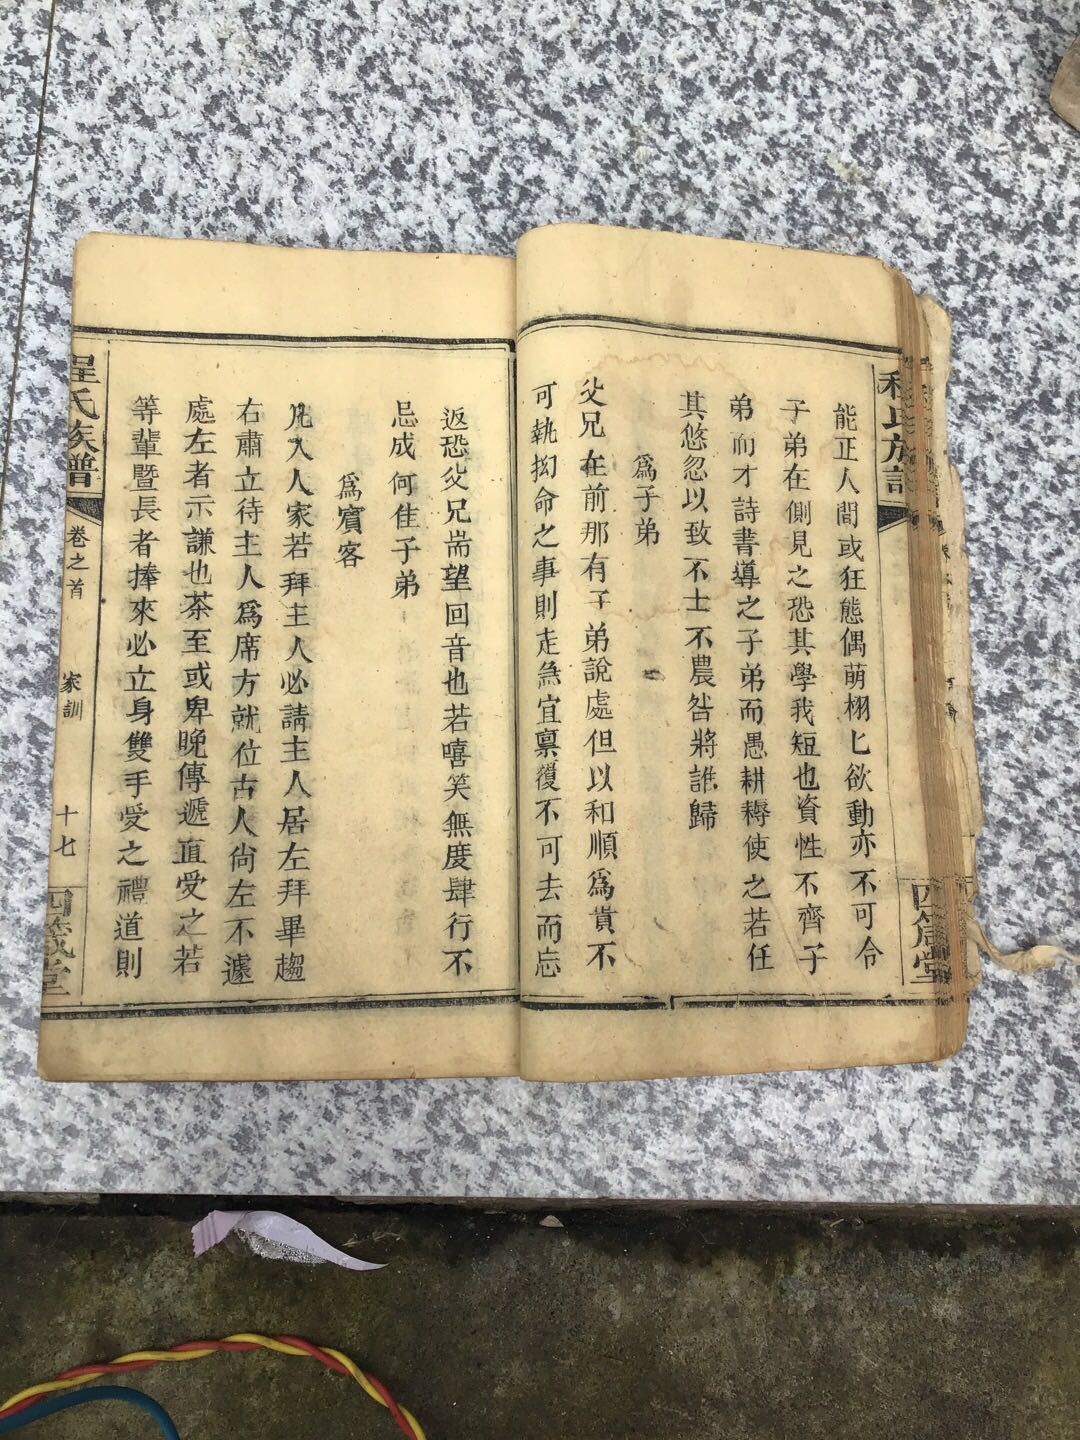 能正人間或狂態偶萌栩匕欲動亦不可令
子弟在側見之恐其學我短也資性不齊子
弟而才詩書導之子弟而愚耕耨使之若任
其悠忽以致不士不農咎將誰歸
為子弟
父兄在前那有子弟說處但以和順為貴不
可執拗命之事則走急宜稟覆不可去而忘
返恐父兄耑望回音也若嘻笑無度肆行不
忌成何佳子弟
為賓客
凡入人家若拜主人必請主人居左拜畢趨
右肅立待主人為席方就位古人尚左不遽
處左者示謙也茶至或卑晚傳遞直受之若
等輩暨長者捧來必立身雙手受之禮道則
程氏族譜
卷之首
家訓
十七
四箴堂